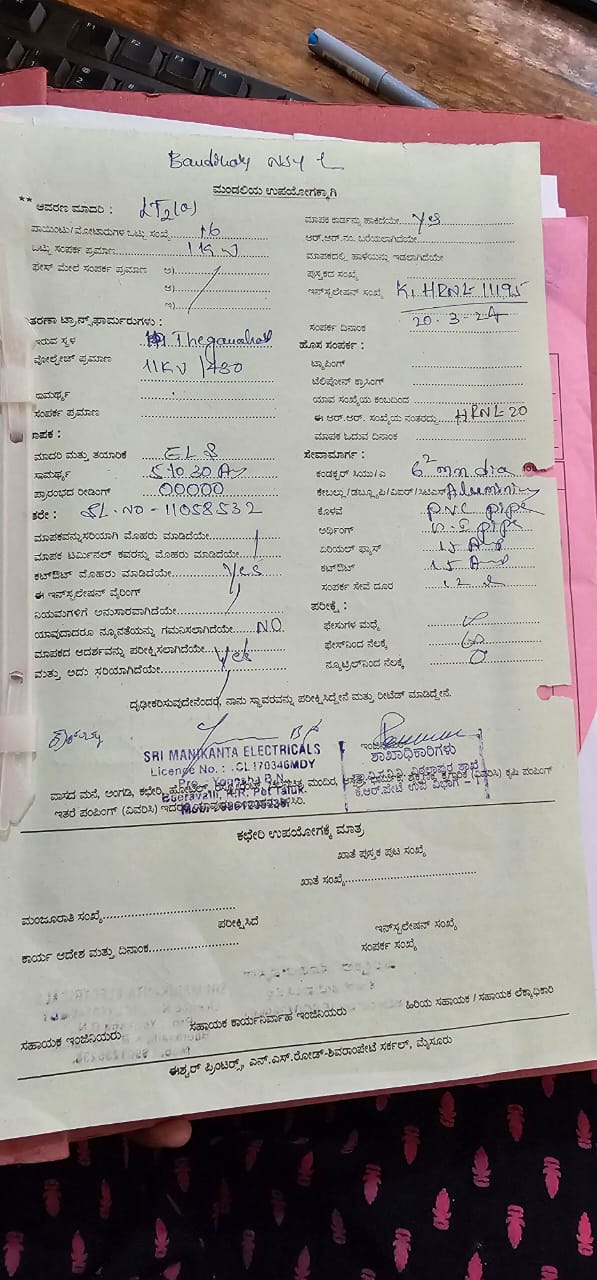 ಮಂಡಲಿಯ ಉಪಯೋಗಕ್ಕಾಗಿ
** ಆವರಣ ಮಾದರಿ : LT2(a)
ಪಾಯಿಂಟು/ಮೋಟಾರುಗಳ ಒಟ್ಟು ಸಂಖ್ಯೆ 16
ಒಟ್ಟು ಸಂಪರ್ಕ ಪ್ರಮಾಣ 1 KW
ಫೇಸ್ ಮೇಲೆ ಸಂಪರ್ಕ ಪ್ರಮಾಣ ಅ)
ಆ)
ಇ)
ವಿತರಣಾ ಟ್ರಾನ್ಸ್‌ಫಾರ್ಮರುಗಳು :
ಇರುವ ಸ್ಥಳ
ವೋಲ್ಟೇಜ್ ಪ್ರಮಾಣ 11KV /430
ಸಾಮರ್ಥ್ಯ
ಸಂಪರ್ಕ ಪ್ರಮಾಣ
ಮಾಪಕ :
ಮಾದರಿ ಮತ್ತು ತಯಾರಿಕೆ
ಸಾಮರ್ಥ್ಯ 5-10 30 A
ಪ್ರಾರಂಭದ ರೀಡಿಂಗ್ 00000
ಶರೇ : SL.NO - 11058532
ಮಾಪಕವನ್ನು ಸರಿಯಾಗಿ ಮೊಹರು ಮಾಡಿದೆಯೇ
ಮಾಪಕ ಟರ್ಮಿನಲ್ ಕವರನ್ನು ಮೊಹರು ಮಾಡಿದೆಯೇ
ಕಟ್‌ಔಟ್ ಮೊಹರು ಮಾಡಿದೆಯೇ Yes
ಈ ಇನ್‌ಸ್ಟಲೇಷನ್ ವೈರಿಂಗ್
ನಿಯಮಗಳಿಗೆ ಅನುಸಾರವಾಗಿದೆಯೇ
ಯಾವುದಾದರೂ ನ್ಯೂನತೆಯನ್ನು ಗಮನಿಸಲಾಗಿದೆಯೇ NO
ಮಾಪಕದ ಆದರ್ಶವನ್ನು ಪರೀಕ್ಷಿಸಲಾಗಿದೆಯೇ Yes
ಮತ್ತು ಅದು ಸರಿಯಾಗಿದೆಯೇ
ಮಾಪಕ ಕಾರ್ಡನ್ನು ಹಾಕಿದೆಯೇ Yes
ಆರ್.ಆರ್.ನಂ. ಬರೆಯಲಾಗಿದೆಯೇ
ಮಾಪಕದಲ್ಲಿ ಹಾಳೆಯನ್ನು ಇಡಲಾಗಿದೆಯೇ
ಪುಸ್ತಕದ ಸಂಖ್ಯೆ
ಇನ್‌ಸ್ಟಲೇಷನ್ ಸಂಖ್ಯೆ K, HRNL 11195
ಸಂಪರ್ಕ ದಿನಾಂಕ 20-3-24
ಹೊಸ ಸಂಪರ್ಕ :
ಟ್ಯಾಪಿಂಗ್
ಟೆಲಿಫೋನ್ ಕ್ರಾಸಿಂಗ್
ಯಾವ ಸಂಖ್ಯೆಯ ಕಂಬದಿಂದ
ಈ ಆರ್.ಆರ್. ಸಂಖ್ಯೆಯ ನಂತರದ್ದು HRNL 20
ಮಾಪಕ ಓದುವ ದಿನಾಂಕ
ಸೇವಾಮಾರ್ಗ :
ಕಂಡಕ್ಟರ್ ಸಿಯು/ಎ 6² mm dia
ಕೇಬಲ್ಲು/ಡಬ್ಲ್ಯೂಪಿ/ವಿಐಆರ್/ಸಿಟಿಎಸ್
ಕೊಳವೆ P.V.C pipe
ಅರ್ಥಿಂಗ್ G.I pipe
ಏರಿಯಲ್ ಫ್ಯೂಸ್ 15 Amp
ಕಟ್‌ಔಟ್ 15 Amp
ಸಂಪರ್ಕ ಸೇವೆ ದೂರ
ಪರೀಕ್ಷೆ :
ಫೇಸುಗಳ ಮಧ್ಯೆ
ಫೇಸ್‌ನಿಂದ ನೆಲಕ್ಕೆ
ನ್ಯೂಟ್ರಲ್‌ನಿಂದ ನೆಲಕ್ಕೆ 0
ದೃಢೀಕರಿಸುವುದೇನೆಂದರೆ, ನಾನು ಸ್ಥಾವರವನ್ನು ಪರೀಕ್ಷಿಸಿದ್ದೇನೆ ಮತ್ತು ರೀಟೆಡ್ ಮಾಡಿದ್ದೇನೆ.
SRI MANIKANTA ELECTRICALS
Licence No. : .CL170346MDY
Pro. Yogesha B.N.
K.R. Pet Taluk.
ಶಾಖಾಧಿಕಾರಿಗಳು
ಕೆ.ಆರ್.ಪೇಟೆ ಉಪ ವಿಭಾಗ - 1
ವಾಸದ ಮನೆ, ಅಂಗಡಿ, ಕಛೇರಿ,
(ವಿವರಿಸಿ) ಕೃಷಿ ಪಂಪಿಂಗ್
ಇತರೆ ಪಂಪಿಂಗ್ (ವಿವರಿಸಿ)
ಕಛೇರಿ ಉಪಯೋಗಕ್ಕೆ ಮಾತ್ರ
ಖಾತೆ ಪುಸ್ತಕ ಪುಟ ಸಂಖ್ಯೆ
ಖಾತೆ ಸಂಖ್ಯೆ
ಮಂಜೂರಾತಿ ಸಂಖ್ಯೆ
ಪರೀಕ್ಷಿಸಿದೆ
ಇನ್‌ಸ್ಟಲೇಷನ್ ಸಂಖ್ಯೆ
ಕಾರ್ಯ ಆದೇಶ ಮತ್ತು ದಿನಾಂಕ
ಸಂಪರ್ಕ ಸಂಖ್ಯೆ
ಸಹಾಯಕ ಇಂಜಿನಿಯರು
ಸಹಾಯಕ ಕಾರ್ಯನಿರ್ವಾಹ ಇಂಜಿನಿಯರು
ಹಿರಿಯ ಸಹಾಯಕ / ಸಹಾಯಕ ಲೆಕ್ಕಾಧಿಕಾರಿ
ಈಶ್ವರ್ ಪ್ರಿಂಟರ್ಸ್, ಎನ್.ಎಸ್.ರೋಡ್-ಶಿವರಾಂಪೇಟೆ ಸರ್ಕಲ್, ಮೈಸೂರು